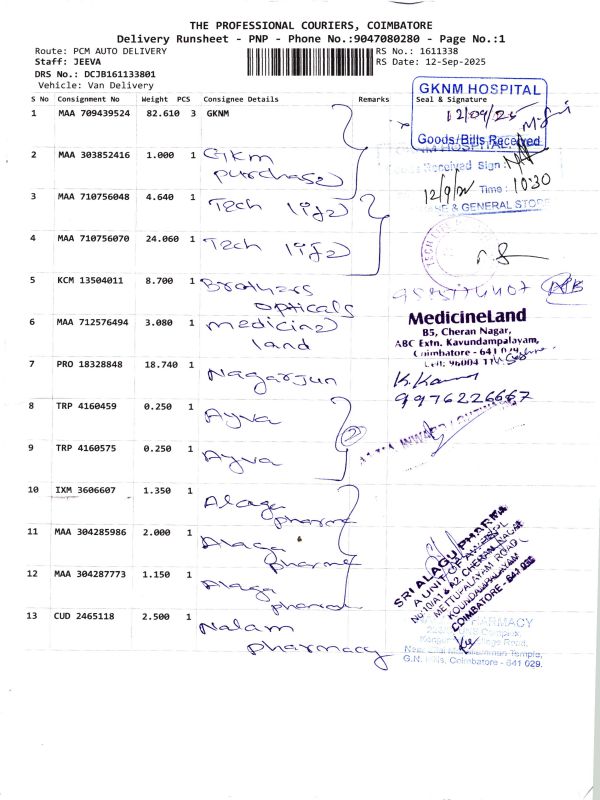 THE PROFESSIONAL COURIERS, COIMBATORE
Delivery Runsheet - PNP - Phone No.:9047080280 - Page No.:1
Route: PCM AUTO DELIVERY
RS No.: 1611338
Staff: JEEVA
RS Date: 12-Sep-2025
DRS No.: DCJB161133801
Vehicle: Van Delivery
S No Consignment No Weight PCS Consignee Details Remarks Seal & Signature
1 MAA 709439524 82.610 3 GKNM
GKNM HOSPITAL
12/09/25
Goods/Bills Received
2 MAA 303852416 1.000 1 GKM
purchase
Received Sign:
12/9/ Time: 10:30
& GENERAL STORE
3 MAA 710756048 4.640 1 Tech life
4 MAA 710756070 24.060 1 Tech life
5 KCM 13504011 8.700 1 Brothers
opticals
6 MAA 712576494 3.080 1 medicine
land
MedicineLand
B5, Cheran Nagar,
ABC Extn. Kavundampalayam,
Coimbatore - 641
Cell: 96004
7 PRO 18328848 18.740 1 Nagarjun
9976226667
8 TRP 4160459 0.250 1 Ayva
2
9 TRP 4160575 0.250 1 Ayva
INWARD
10 IXM 3606607 1.350 1 Alaga
pharma
11 MAA 304285986 2.000 1 Alaga
pharma
12 MAA 304287773 1.150 1 Alaga
pharma
SRI ALAGU PHARMA
A UNIT OF
& A2, CHERAN NAGAR
METTUPALAYAM ROAD
KOUNDAMPALAYAM
COIMBATORE - 641
13 CUD 2465118 2.500 1 Nalam
pharmacy
PHARMACY
Complex,
College Road,
Temple,
G.N. Mills, Coimbatore - 641 029.